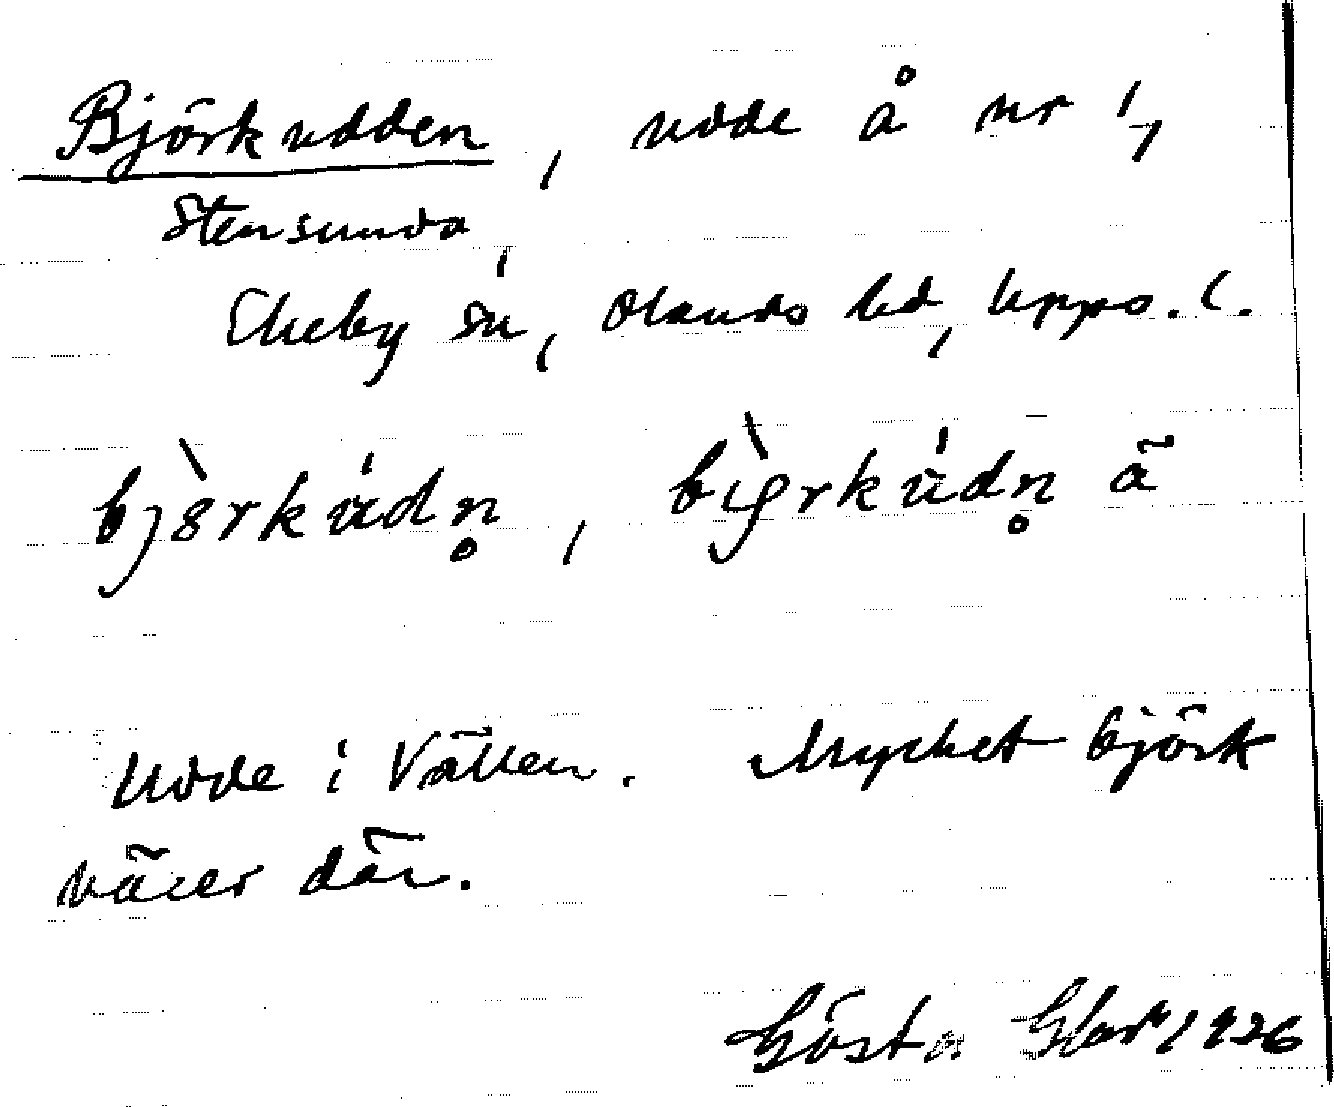 Björkudden, udde å nr 1,
Stensunda,
Ekeby sn, Olands hd, Upps. l.
bjòrkúdn̥, bjòrkúdn̥ ä
Udde i Vällen. Mycket björk
växer där.
Gösta 1926